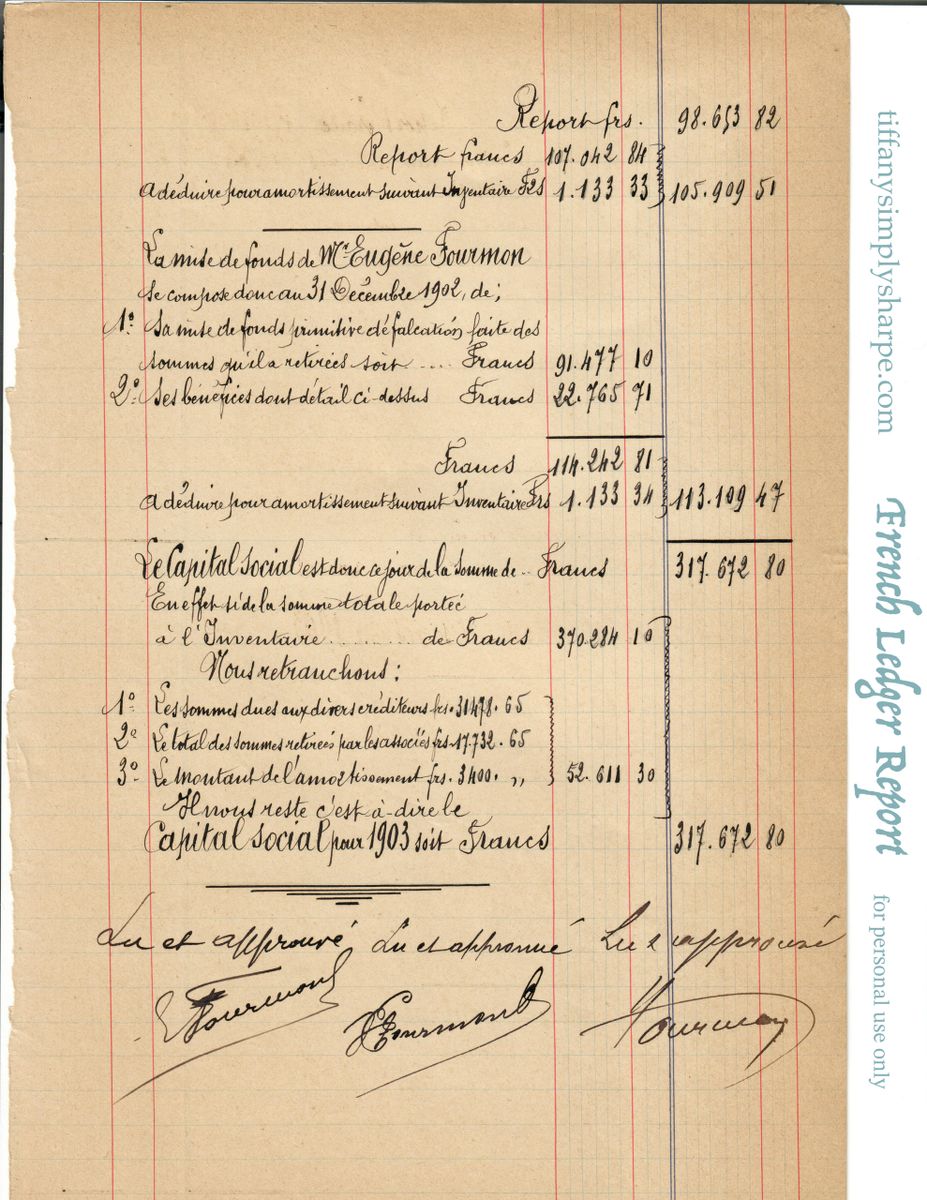 Report frs. 98.653 82
Report francs 107.042 84
A déduire pour amortissement suivant Inventaire Frs 1.133 33 105.909 51
La mise de fonds de Mr Eugène Fourmon
se compose donc au 31 Décembre 1902, de;
1º Sa mise de fonds primitive défalcation faite des
sommes qu'il a retirées soit .... Francs 91.477 10
2º Ses bénéfices dont détail ci-dessus Francs 22.765 71
Francs 114.242 81
A déduire pour amortissement suivant Inventaire Frs 1.133 34 113.109 47
Le Capital social est donc ce jour de la somme de .. Francs 317.672 80
En effet si de la somme totale portée
à l'Inventaire ........ de Francs 370.284 10
Nous retranchons:
1º Les sommes dues aux divers créditeurs frs. 31478. 65
2º Le total des sommes retirées par les associés frs. 17.732. 65
3º Le montant de l'amortissement frs. 3400. ,, 52.611 30
Il nous reste c'est-à-dire le
Capital social pour 1903 soit Francs 317.672 80
Lu et approuvé Lu et approuvé Lu & approuvé
Fourmon Fourmond Fourmon
tiffanysimplysharpe.com
French Ledger Report
for personal use only